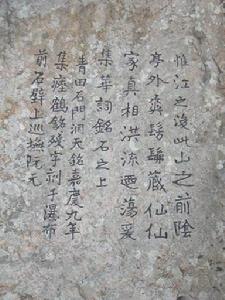 惟江之此山之前陰
亭外藏仙仙
家真相洪流迴蕩爰
集華詞銘石之上
青田石門洞天銘嘉慶九年
集瘞鶴銘字刻于瀑布
前石壁上巡撫阮元